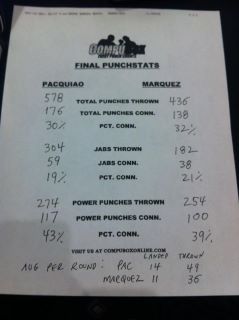 COMPUBOX
FINAL PUNCHSTATS
PACQUIAO MARQUEZ
578 TOTAL PUNCHES THROWN 436
176 TOTAL PUNCHES CONN. 138
30% PCT. CONN. 32%
304 JABS THROWN 182
59 JABS CONN. 38
19% PCT. CONN. 21%
274 POWER PUNCHES THROWN 254
117 POWER PUNCHES CONN. 100
43% PCT. CONN. 39%
VISIT US AT COMPUBOXONLINE.COM
LANDED THROWN
AUG PER ROUND: PAC 14 49
MARQUEZ 11 36